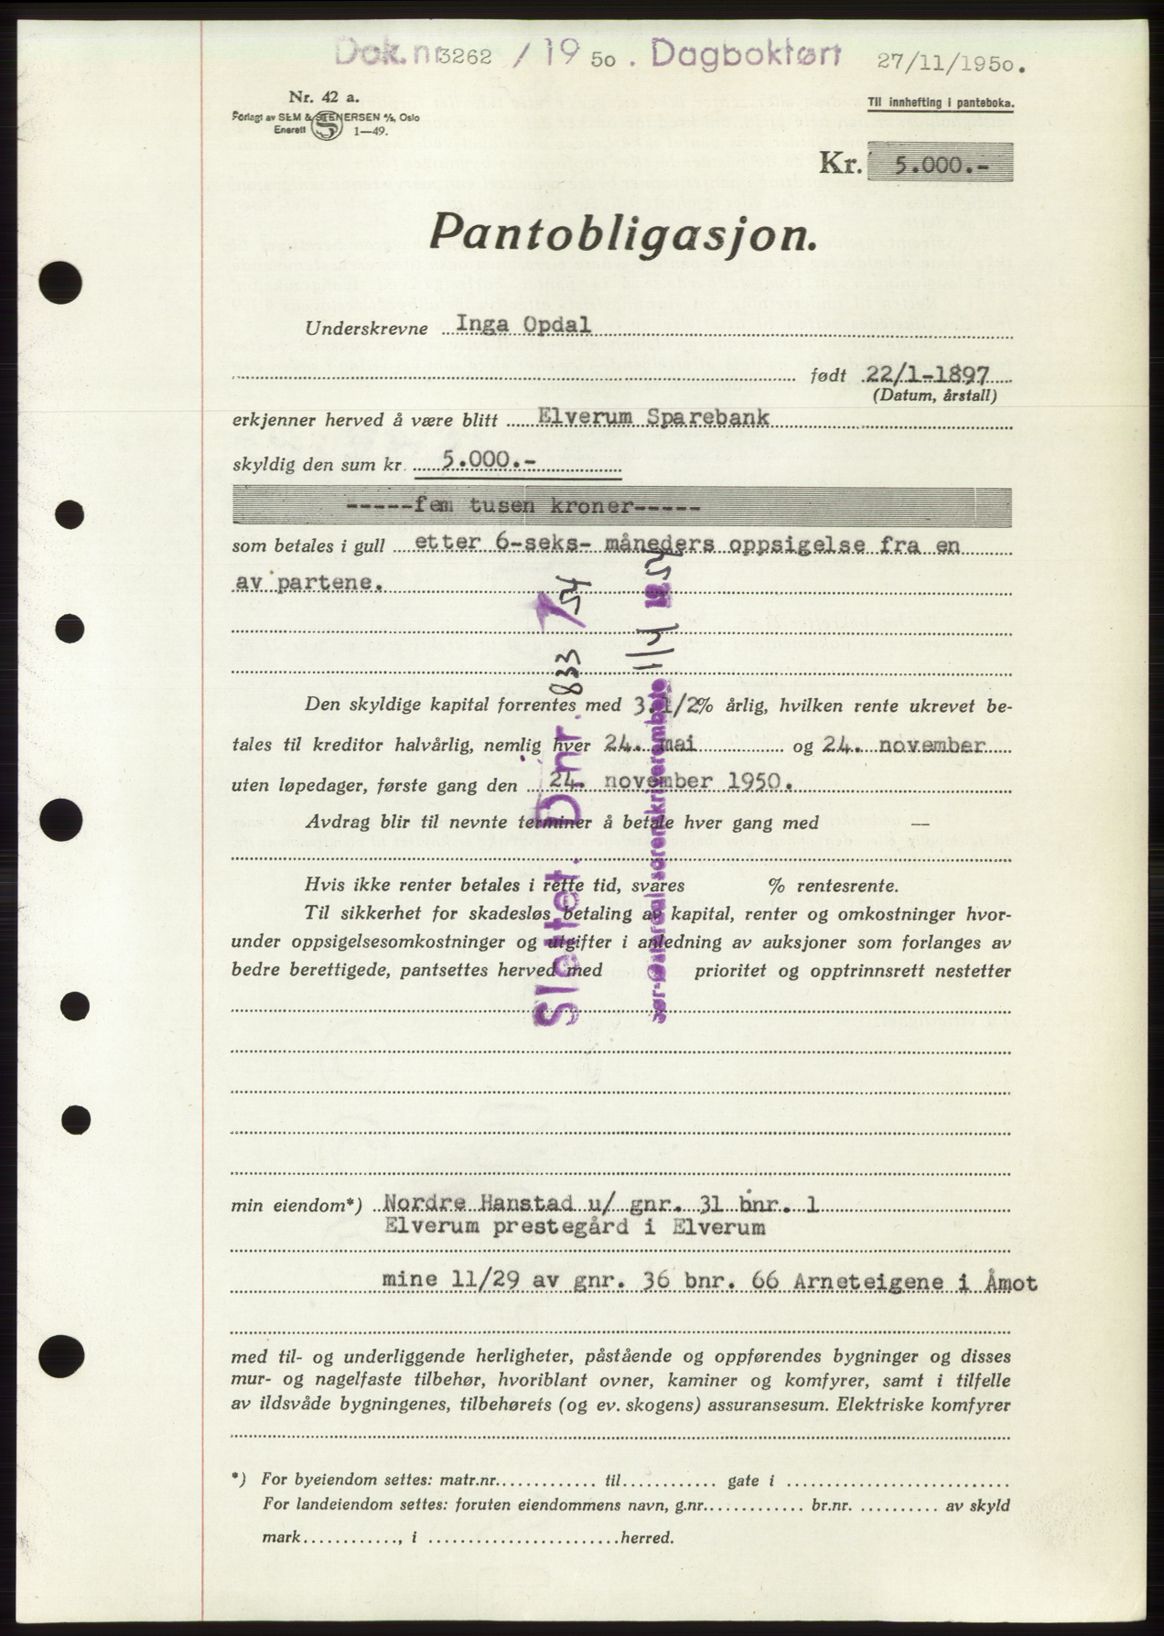 Dok.nr 3262 / 19 50 . Dagbokført 27/11/1950.
Nr. 42 a.
Forlagt av SEM & STENERSEN A/S, Oslo
Enerett 1—49.
Til innhefting i panteboka.
Kr. 5.000.-
Pantobligasjon.
Underskrevne Inga Opdal
født 22/1-1897
(Datum, årstall)
erkjenner herved å være blitt Elverum Sparebank
skyldig den sum kr. 5.000.-
-----fem tusen kroner-----
som betales i gull etter 6-seks- måneders oppsigelse fra en
av partene.
Den skyldige kapital forrentes med 3.1/2% årlig, hvilken rente ukrevet be-
tales til kreditor halvårlig, nemlig hver 24. mai og 24. november
uten løpedager, første gang den 24. november 1950.
Avdrag blir til nevnte terminer å betale hver gang med —
Hvis ikke renter betales i rette tid, svares % rentesrente.
Til sikkerhet for skadesløs betaling av kapital, renter og omkostninger hvor-
under oppsigelsesomkostninger og utgifter i anledning av auksjoner som forlanges av
bedre berettigede, pantsettes herved med prioritet og opptrinnsrett nestetter
Slettet. D.nr. 833 / 54
Sør-Østerdal sorenskriverembete 1/4 1954
min eiendom*) Nordre Hanstad u/ gnr. 31 bnr. 1
Elverum prestegård i Elverum
mine 11/29 av gnr. 36 bnr. 66 Arneteigene i Åmot
med til- og underliggende herligheter, påstående og oppførendes bygninger og disses
mur- og nagelfaste tilbehør, hvoriblant ovner, kaminer og komfyrer, samt i tilfelle
av ildsvåde bygningenes, tilbehørets (og ev. skogens) assuransesum. Elektriske komfyrer
*) For byeiendom settes: matr.nr............. til............ gate i ............................
For landeiendom settes: foruten eiendommens navn, g.nr............. br.nr. .......... av skyld
mark............., i ........................herred.